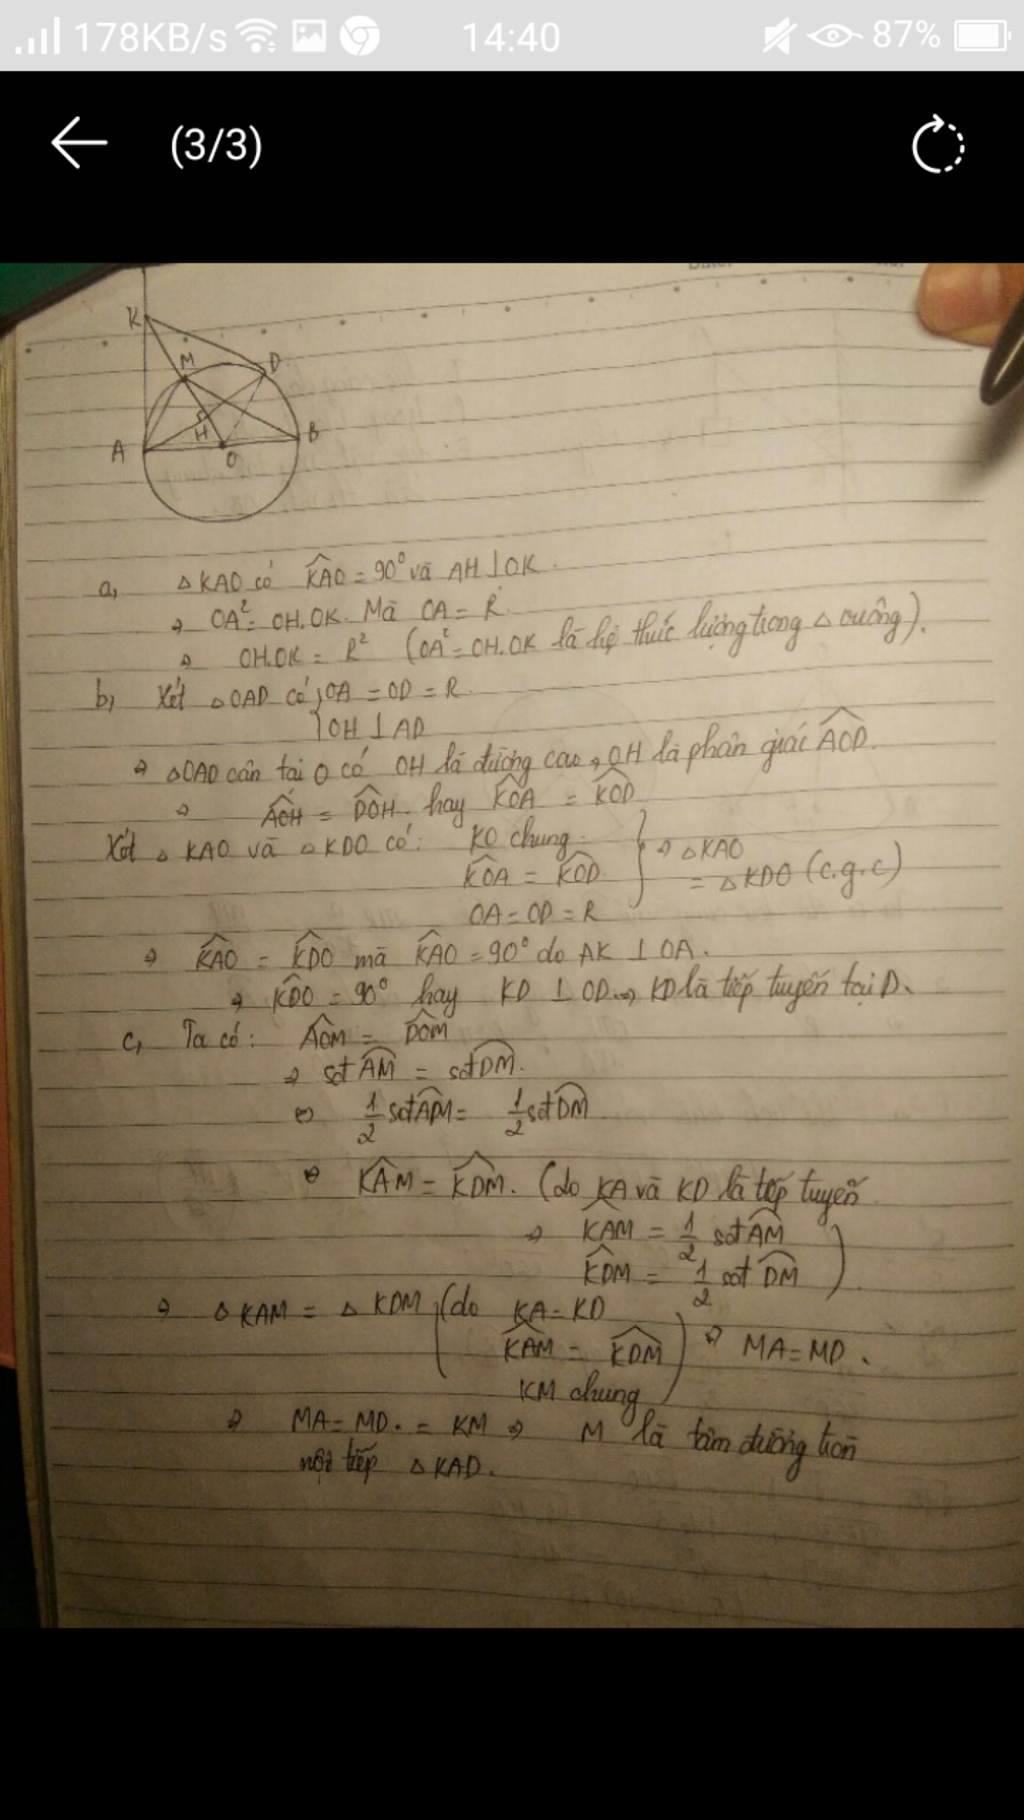 178KB/s 14:40 87%
(3/3)
K
M D
H
A O B
a, △KAO có KAO = 90° và AH ⊥ OK.
⇒ OA² = OH.OK. Mà OA = R.
⇒ OH.OK = R² (OA² = OH.OK là hệ thức lượng trong △ vuông).
b, Xét △OAD có { OA = OD = R
OH ⊥ AD
⇒ △OAD cân tại O có OH là đường cao ⇒ OH là phân giác AOD.
⇒ AOH = DOH. hay KOA = KOD
Xét △ KAO và △ KDO có: KO chung.
KOA = KOD. } ⇒ △KAO = △KDO (c.g.c)
OA = OD = R
⇒ KAO = KDO mà KAO = 90° do AK ⊥ OA.
⇒ KDO = 90° hay KD ⊥ OD. ⇒ KD là tiếp tuyến tại D.
c, Ta có: AOM = DOM
⇒ sđ AM = sđ DM.
⇔ 1/2 sđ AM = 1/2 sđ DM
⇔ KAM = KDM. (do KA và KD là tiếp tuyến
⇒ KAM = 1/2 sđ AM
KDM = 1/2 sđ DM ).
⇒ △ KAM = △ KDM (do KA = KD
KAM = KDM ) ⇒ MA = MD.
KM chung
⇒ MA = MD. = KM ⇒ M là tâm đường tròn
nội tiếp △ KAD.